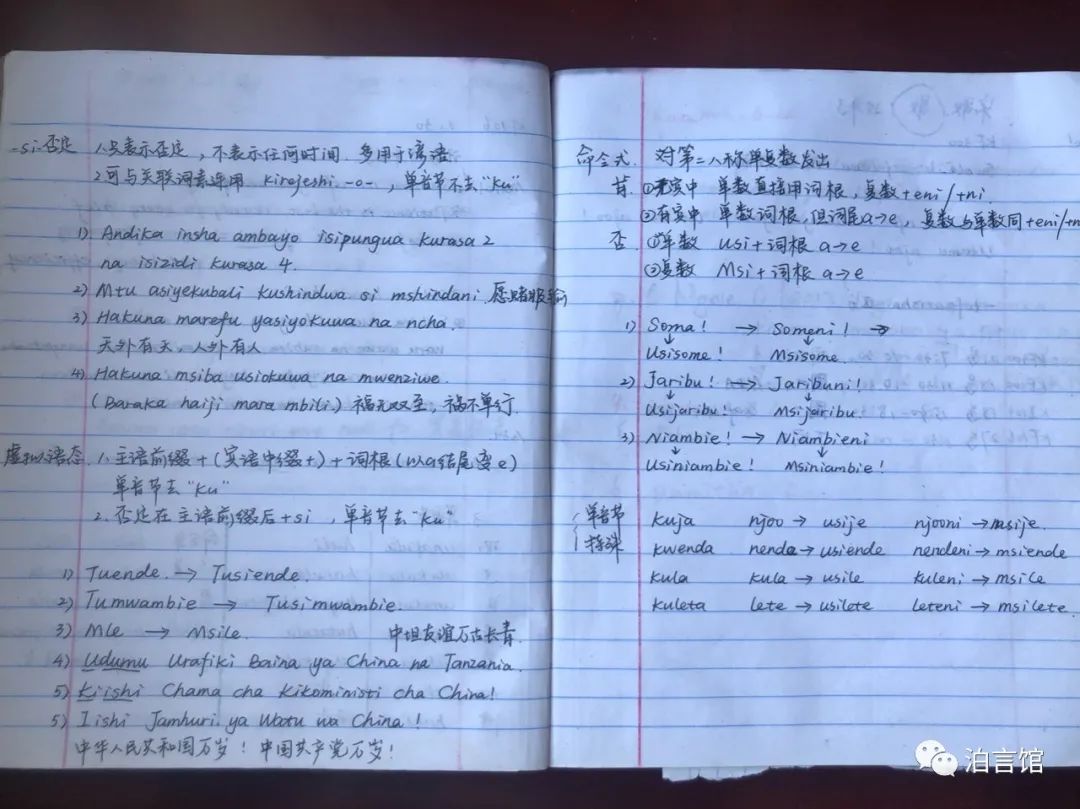 -si-否定 1.只表示否定，不表示任何时间. 多用于谚语
2.可与关联词素连用 kirejeshi -o-，单音节不去"ku"
1) Andika insha ambayo isipungua kurasa 2
na isizidi kurasa 4.
2) Mtu asiyekubali kushindwa si mshindani 愿赌服输
3) Hakuna marefu yasiyokuwa na ncha
天外有天，人外有人
4) Hakuna msiba usiokuwa na mwenziwe.
(Baraka haiji mara mbili.) 福无双至，祸不单行.
虚拟语态 1.主语前缀+(宾语中缀+)+词根(以a结尾变e)
单音节去"ku"
2.否定在主语前缀后+si，单音节去"ku"
1) Tuende. → Tusiende.
2) Tumwambie → Tusimwambie.
3) Mle → Msile. 中坦友谊万古长青.
4) Udumu Urafiki Baina ya China na Tanzania.
5) Kiishi Chama cha Kikoministi cha China!
5) Iishi Jamhuri ya Watu wa China!
中华人民共和国万岁！中国共产党万岁！
命令式. 对第二人称单复数发出
肯 ①无宾中 单数直接用词根，复数+eni/+ni.
②有宾中 单数词根，但词尾a→e，复数与单数同+eni/+ni
否 ①单数 usi+词根 a→e
②复数 Msi+词根 a→e
1) Soma! → Someni! →
Usisome! Msisome.
2) Jaribu! → Jaribuni!
Usijaribu! Msijaribu.
3) Niambie! → Niambieni
Usiniambie! Msiniambie!
单音节 kuja njoo → usije njooni → msije.
特殊 kwenda nenda → usiende nendeni → msiende
kula kula → usile kuleni → msile
kuleta lete → usilete leteni → msilete.
泊言馆